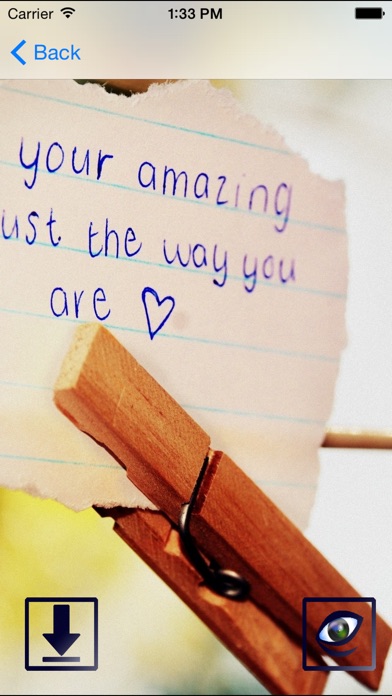 Carrier 1:33 PM
Back
your amazing
ust the way you
are